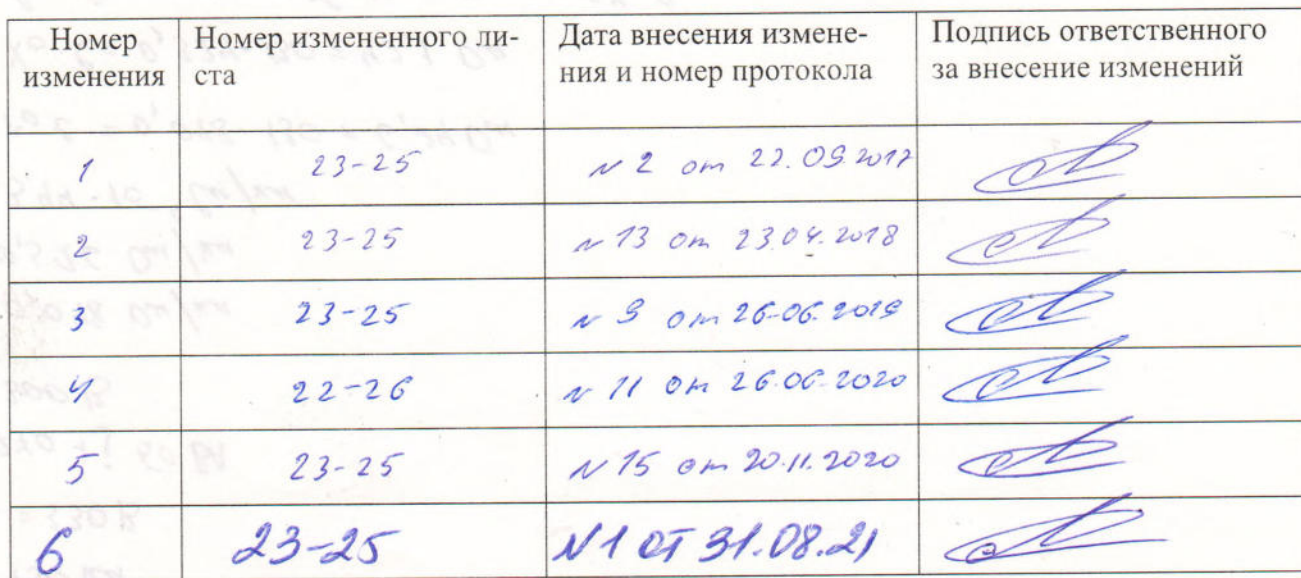 Номер изменения | Номер измененного ли-ста | Дата внесения измене-ния и номер протокола | Подпись ответственного за внесение изменений
1 | 23-25 | N 2 от 22.09.2017
2 | 23-25 | N 13 от 23.04.2018
3 | 23-25 | N 9 от 26.06.2019
4 | 22-26 | N 11 от 26.06.2020
5 | 23-25 | N 15 от 20.11.2020
6 | 23-25 | N1 ОТ 31.08.21